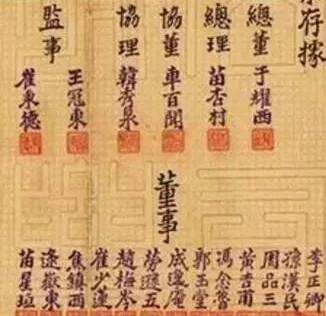 存據
總董 于耀西
總理 苗杏村
協董 車百聞
協理 韓秀泉
王冠東
監事 崔東德
董事
李正卿
孫漢民
周品三
黃吉甫
馮念魯
郭玉堂
成逸庵
勞遜五
趙梅岑
崔少蓮
焦鎮西
逄嶽東
苗星垣